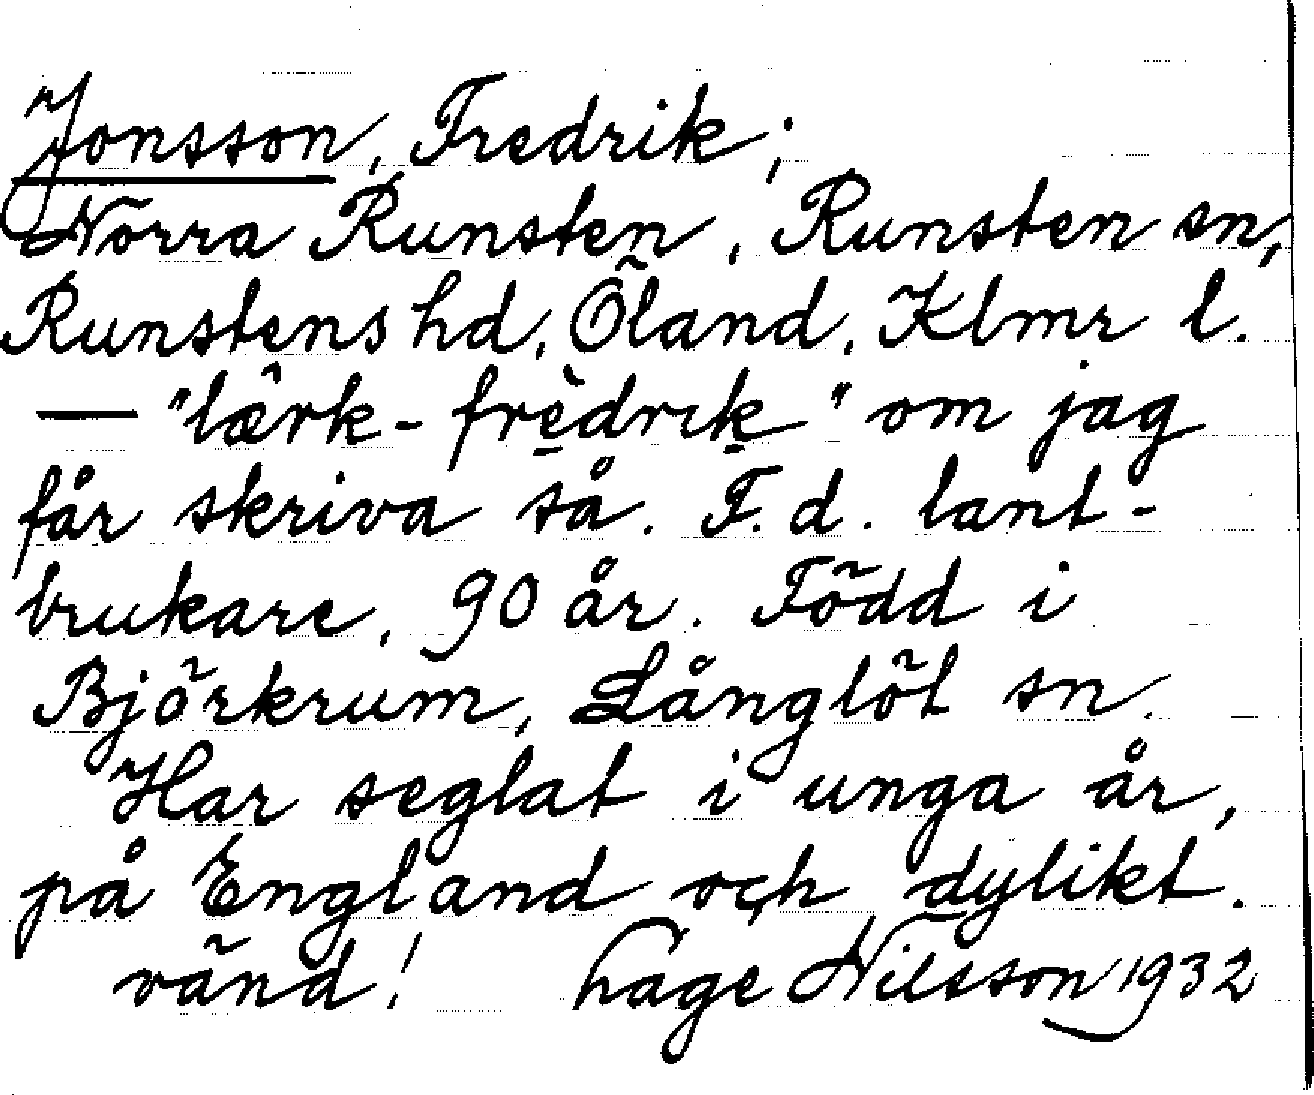 Jonsson, Fredrik;
Norra Runsten, Runsten sn,
Runstens hd, Öland, Klmr l.
— "lærk-frèdrik" om jag
får skriva så. F.d. lant-
brukare, 90 år. Född i
Björkrum, Långlöt sn.
Har seglat i unga år,
på England och dylikt.
vänd! hage Nilsson 1932